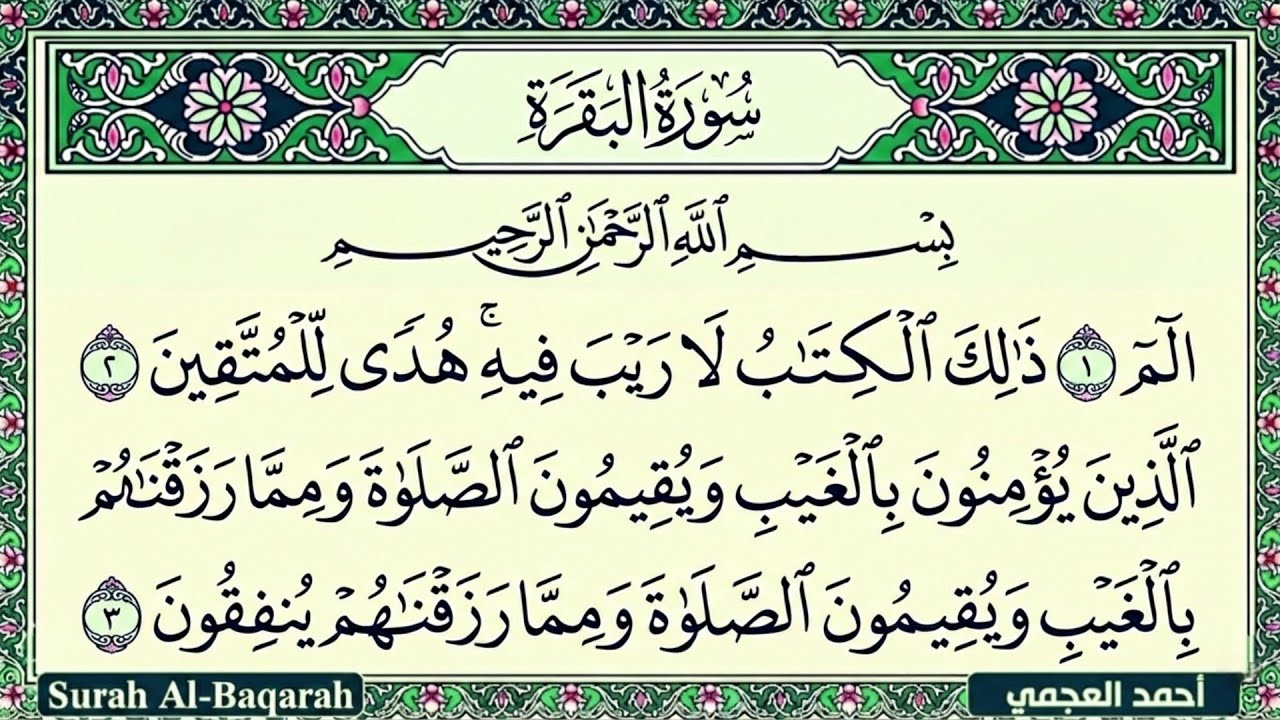 سُورَةُ البَقَرَةِ
بِسْمِ ٱللَّهِ ٱلرَّحْمَٰنِ ٱلرَّحِيمِ
الٓمٓ ١ ذَٰلِكَ ٱلْكِتَٰبُ لَا رَيْبَ فِيهِ ۚ هُدًى لِّلْمُتَّقِينَ ٢
ٱلَّذِينَ يُؤْمِنُونَ بِٱلْغَيْبِ وَيُقِيمُونَ ٱلصَّلَوٰةَ وَمِمَّا رَزَقْنَٰهُمْ
بِٱلْغَيْبِ وَيُقِيمُونَ ٱلصَّلَوٰةَ وَمِمَّا رَزَقْنَٰهُمْ يُنفِقُونَ ٣
Surah Al-Baqarah
أحمد العجمي